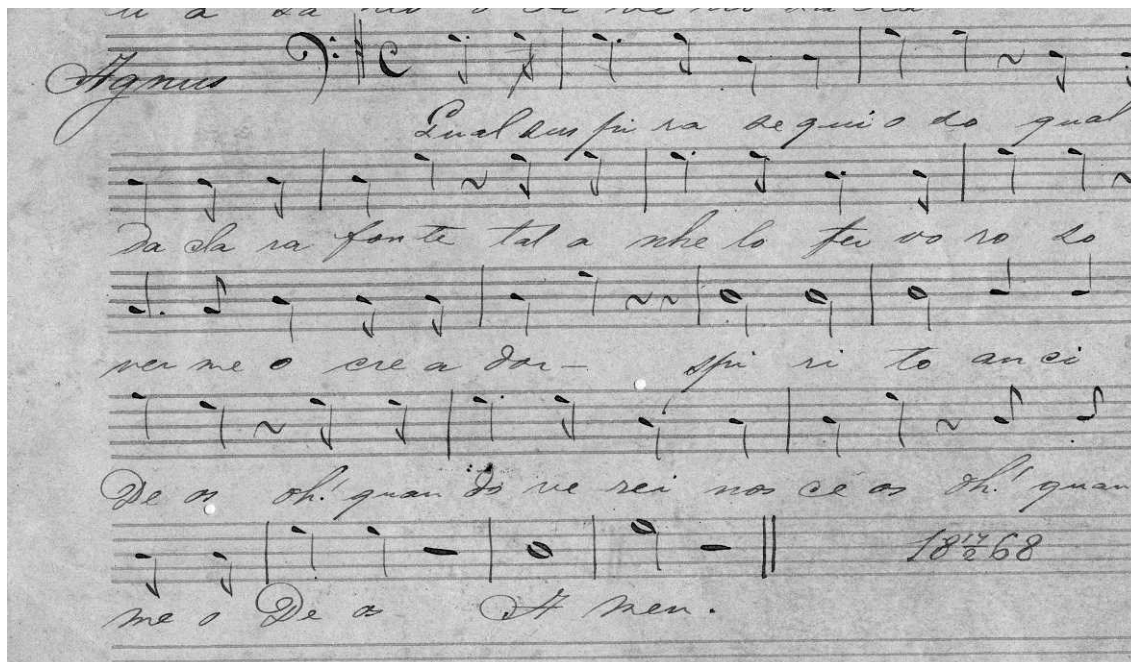 Agnus
Qual sus pi ra se qui o so qual
da cla ra fon te tal a nhe lo fer vo ro so
ver me o cre a dor - spi ri to an ci
De os oh! quan do ve rei nos cé os oh! quan
me o De os A men.
18 17/2 68